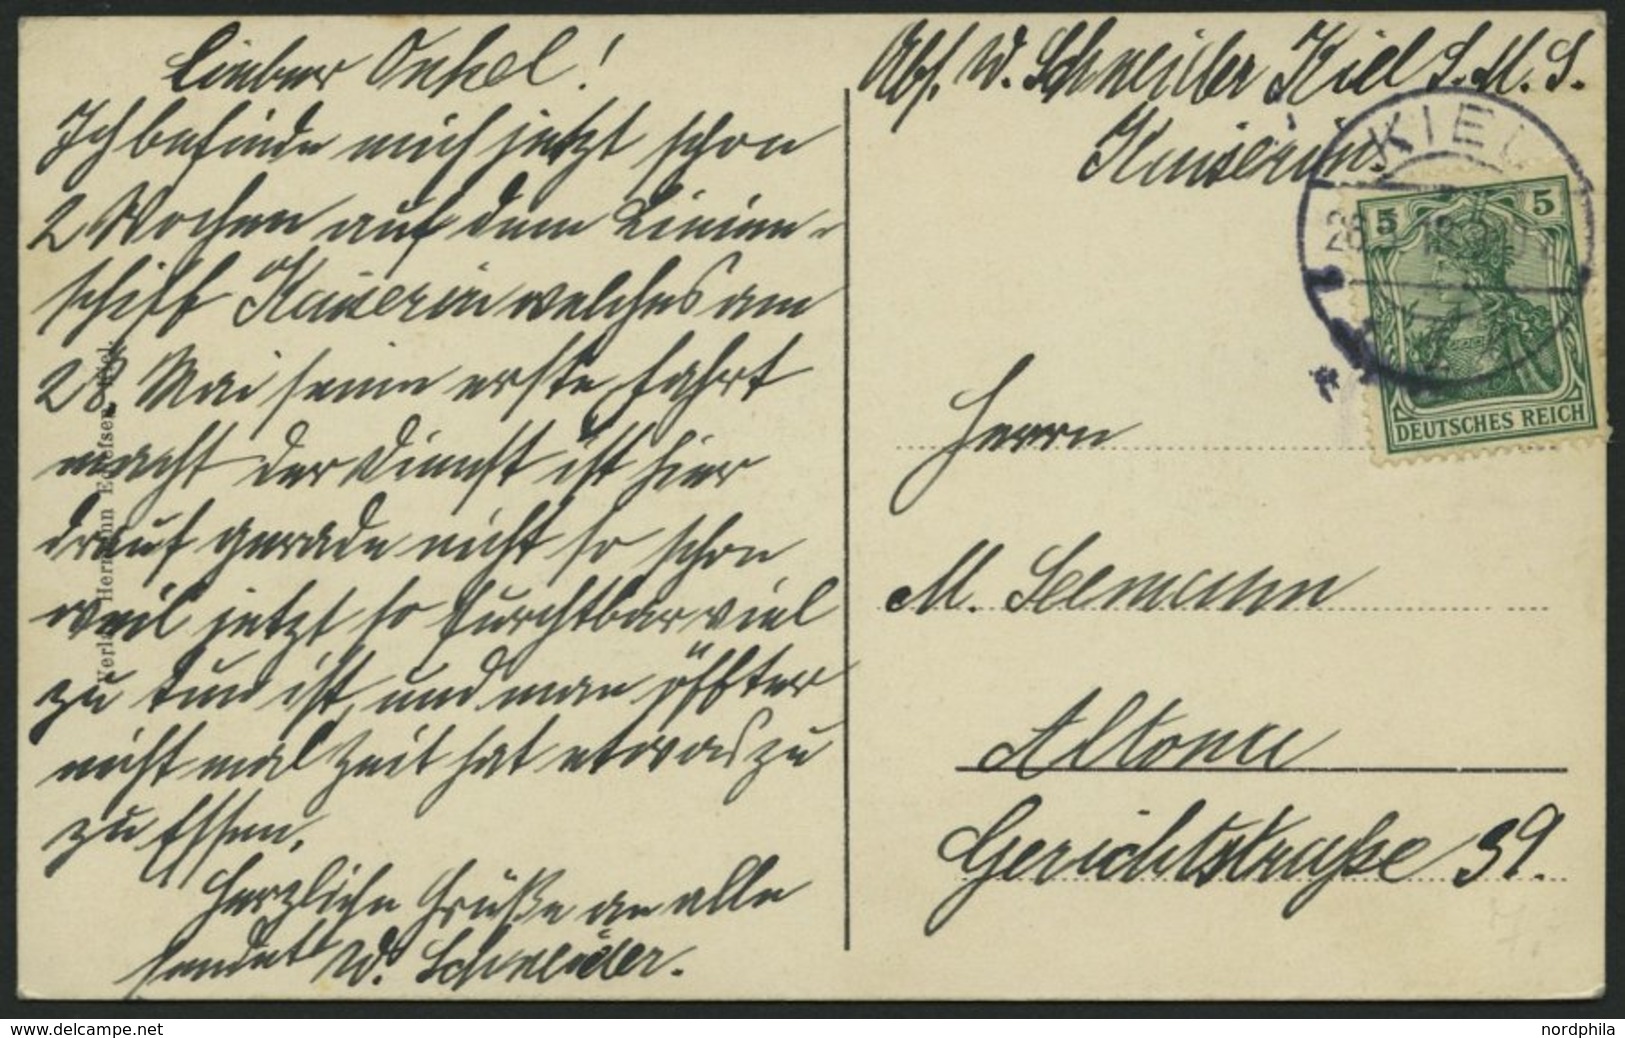 Lieber Onkel!
Ich befinde mich jetzt schon
2 Wochen auf dem Linien-
schiff Kaiserin welches am
28. Mai seine erste Fahrt
macht der Dienst ist hier
drauf gerade nicht so schon
weil jetzt so furchtbar viel
zu tun ist, und man öffter
nicht mal Zeit hat etwas zu
zu Essen.
Herzliche Grüße an alle
sendet W. Schneider.
Verlag Hermann
Abs. W. Schneider Kiel S.M.S.
Kaiserin
KIEL
5 5
DEUTSCHES REICH
Herrn
M. Seemann
Altona
Gerichtstraße 39.
www.delcampe.net
nordphila